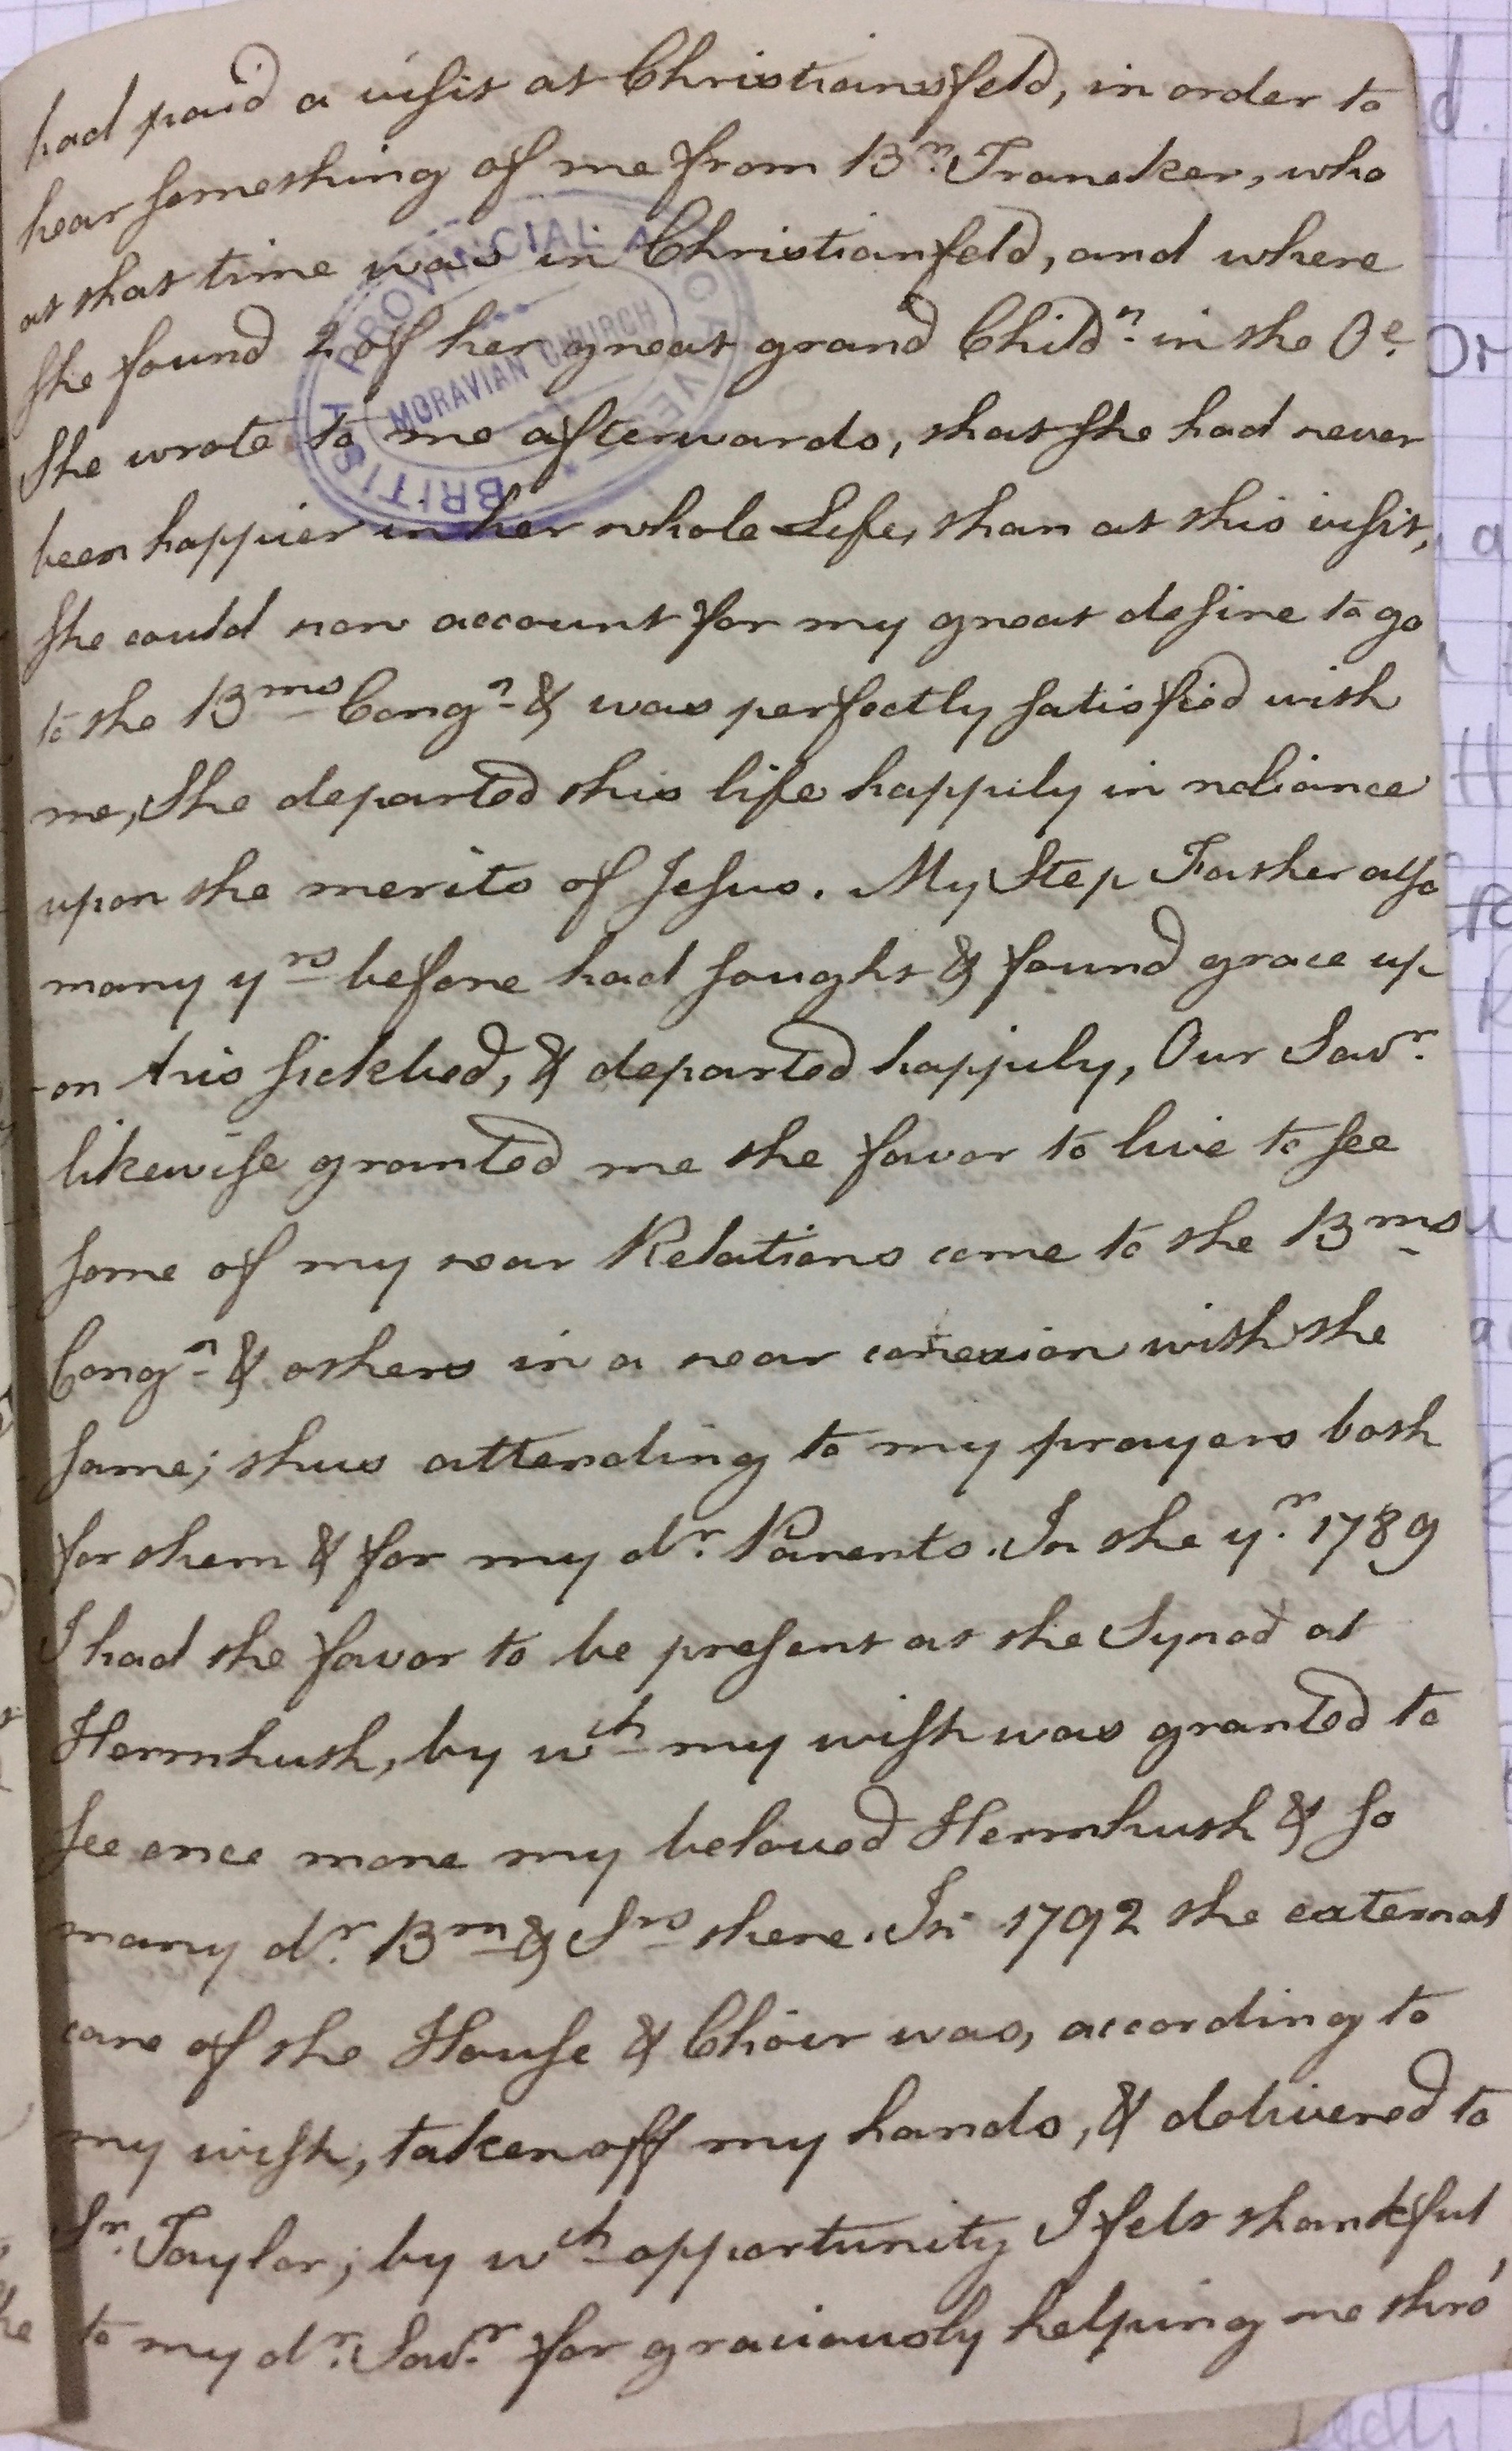 had paid a visit at Christiansfeld, in order to
hear something of me from Br. Traneker, who
at that time was in Christianfeld, and where
she found 2 of her great grand Childn. in the Oe.
She wrote to me afterwards, that she had never
been happier in her whole Life, than at this visit,
she could now account for my great desire to go
to the Brns Congn & was perfectly satisfied with
me, She departed this life happily in reliance
upon the merits of Jesus. My Step Father also
many yrs before had sought & found grace up
-on his sickbed, & departed happily, Our Savr.
likewise granted me the favor to live to see
some of my near Relations come to the Brns
Congn & others in a near conexion with the
same; thus attending to my prayers both
for them & for my dr. Parents. In the yr. 1789
I had the favor to be present at the Synod at
Herrnhuth, by wch my wish was granted to
see once more my beloved Herrnhuth & so
many dr. Brn & Srs there. In 1792 the external
care of the House & Choir was, according to
my wish, taken off my hands, & delivered to
Sr. Taylor; by wch opportunity I felt thankful
to my dr. Savr. for graciously helping me thro'
BRITISH PROVINCIAL ARCHIVES
MORAVIAN CHURCH